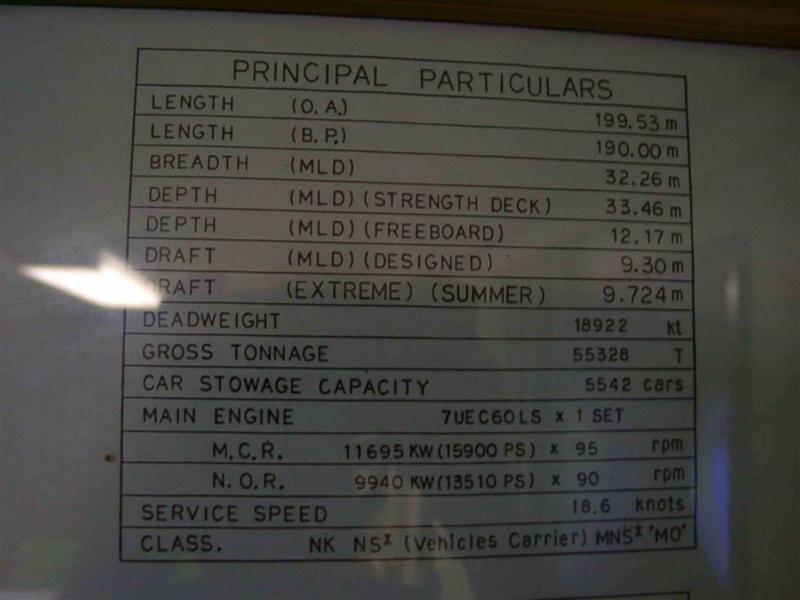 PRINCIPAL PARTICULARS
LENGTH (O.A.) 199.53 m
LENGTH (B.P.) 190.00 m
BREADTH (MLD) 32.26 m
DEPTH (MLD) (STRENGTH DECK) 33.46 m
DEPTH (MLD) (FREEBOARD) 12.17 m
DRAFT (MLD) (DESIGNED) 9.30 m
DRAFT (EXTREME) (SUMMER) 9.724 m
DEADWEIGHT 18922 kt
GROSS TONNAGE 55328 T
CAR STOWAGE CAPACITY 5542 cars
MAIN ENGINE 7UEC60LS x 1 SET
M.C.R. 11695 KW (15900 PS) x 95 rpm
N.O.R. 9940 KW (13510 PS) x 90 rpm
SERVICE SPEED 18.6 knots
CLASS. NK NS* (Vehicles Carrier) MNS* "MO"